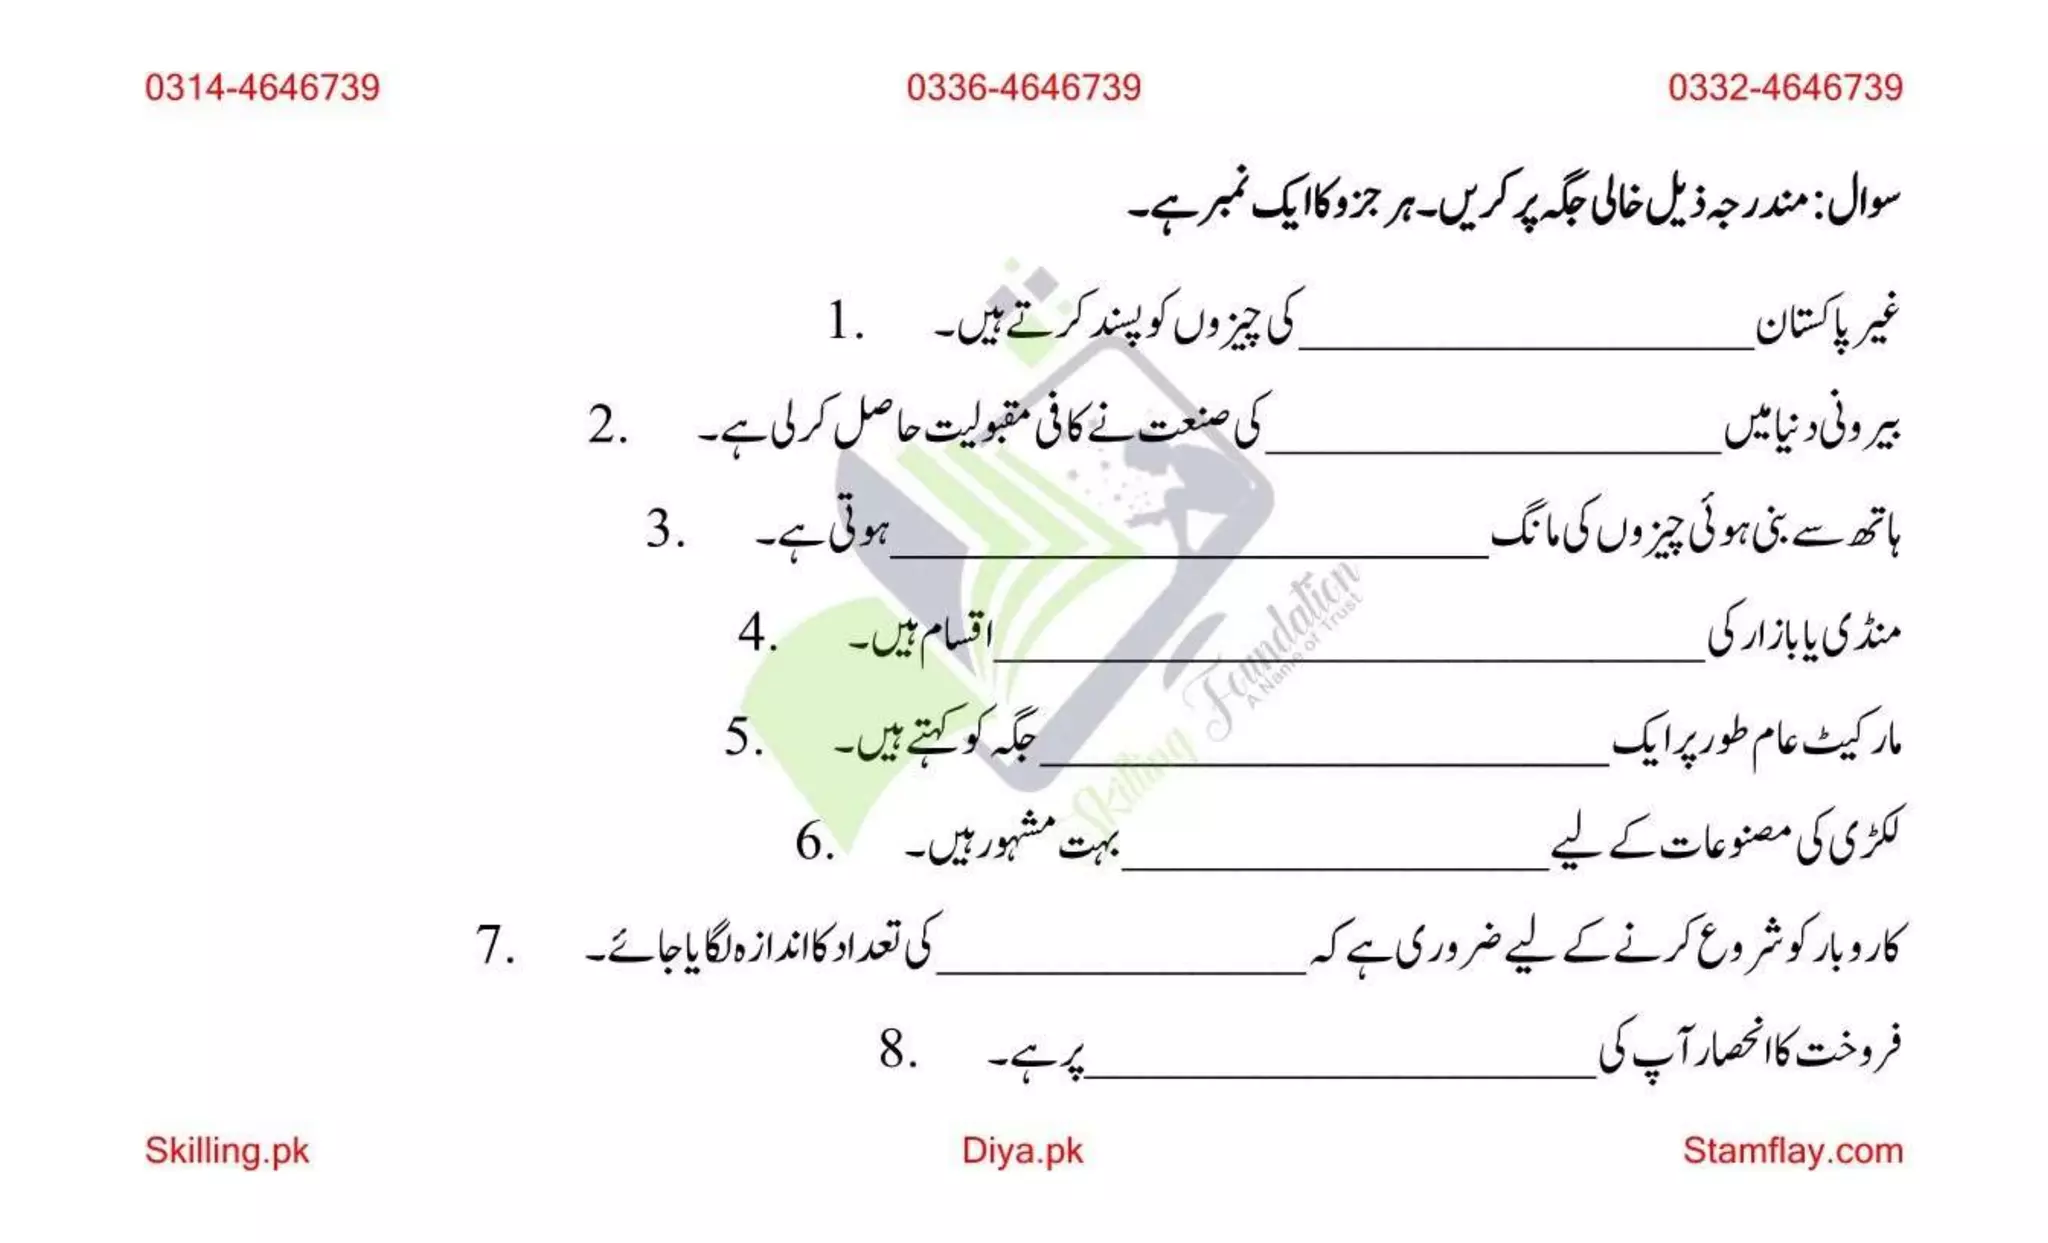 0314-4646739 0336-4646739 0332-4646739
سوال: مندرجہ ذیل خالی جگہ پر کریں۔ ہر جزو کا ایک نمبر ہے۔
غیر پاکستان ____________________ کی چیزوں کو پسند کرتے ہیں۔ 1.
بیرونی دنیا میں ____________________ کی صنعت نے کافی مقبولیت حاصل کر لی ہے۔ 2.
ہاتھ سے بنی ہوئی چیزوں کی مانگ ____________________ ہوتی ہے۔ 3.
منڈی یا بازار کی ____________________ اقسام ہیں۔ 4.
مارکیٹ عام طور پر ایک ____________________ جگہ کو کہتے ہیں۔ 5.
لکڑی کی مصنوعات کے لیے ____________________ بہت مشہور ہیں۔ 6.
کاروبار کو شروع کرنے کے لیے ضروری ہے کہ ____________________ کی تعداد کا اندازہ لگایا جائے۔ 7.
فروخت کا انحصار آپ کی ____________________ پر ہے۔ 8.
Skilling Foundation
A Name of Trust
Skilling.pk Diya.pk Stamflay.com